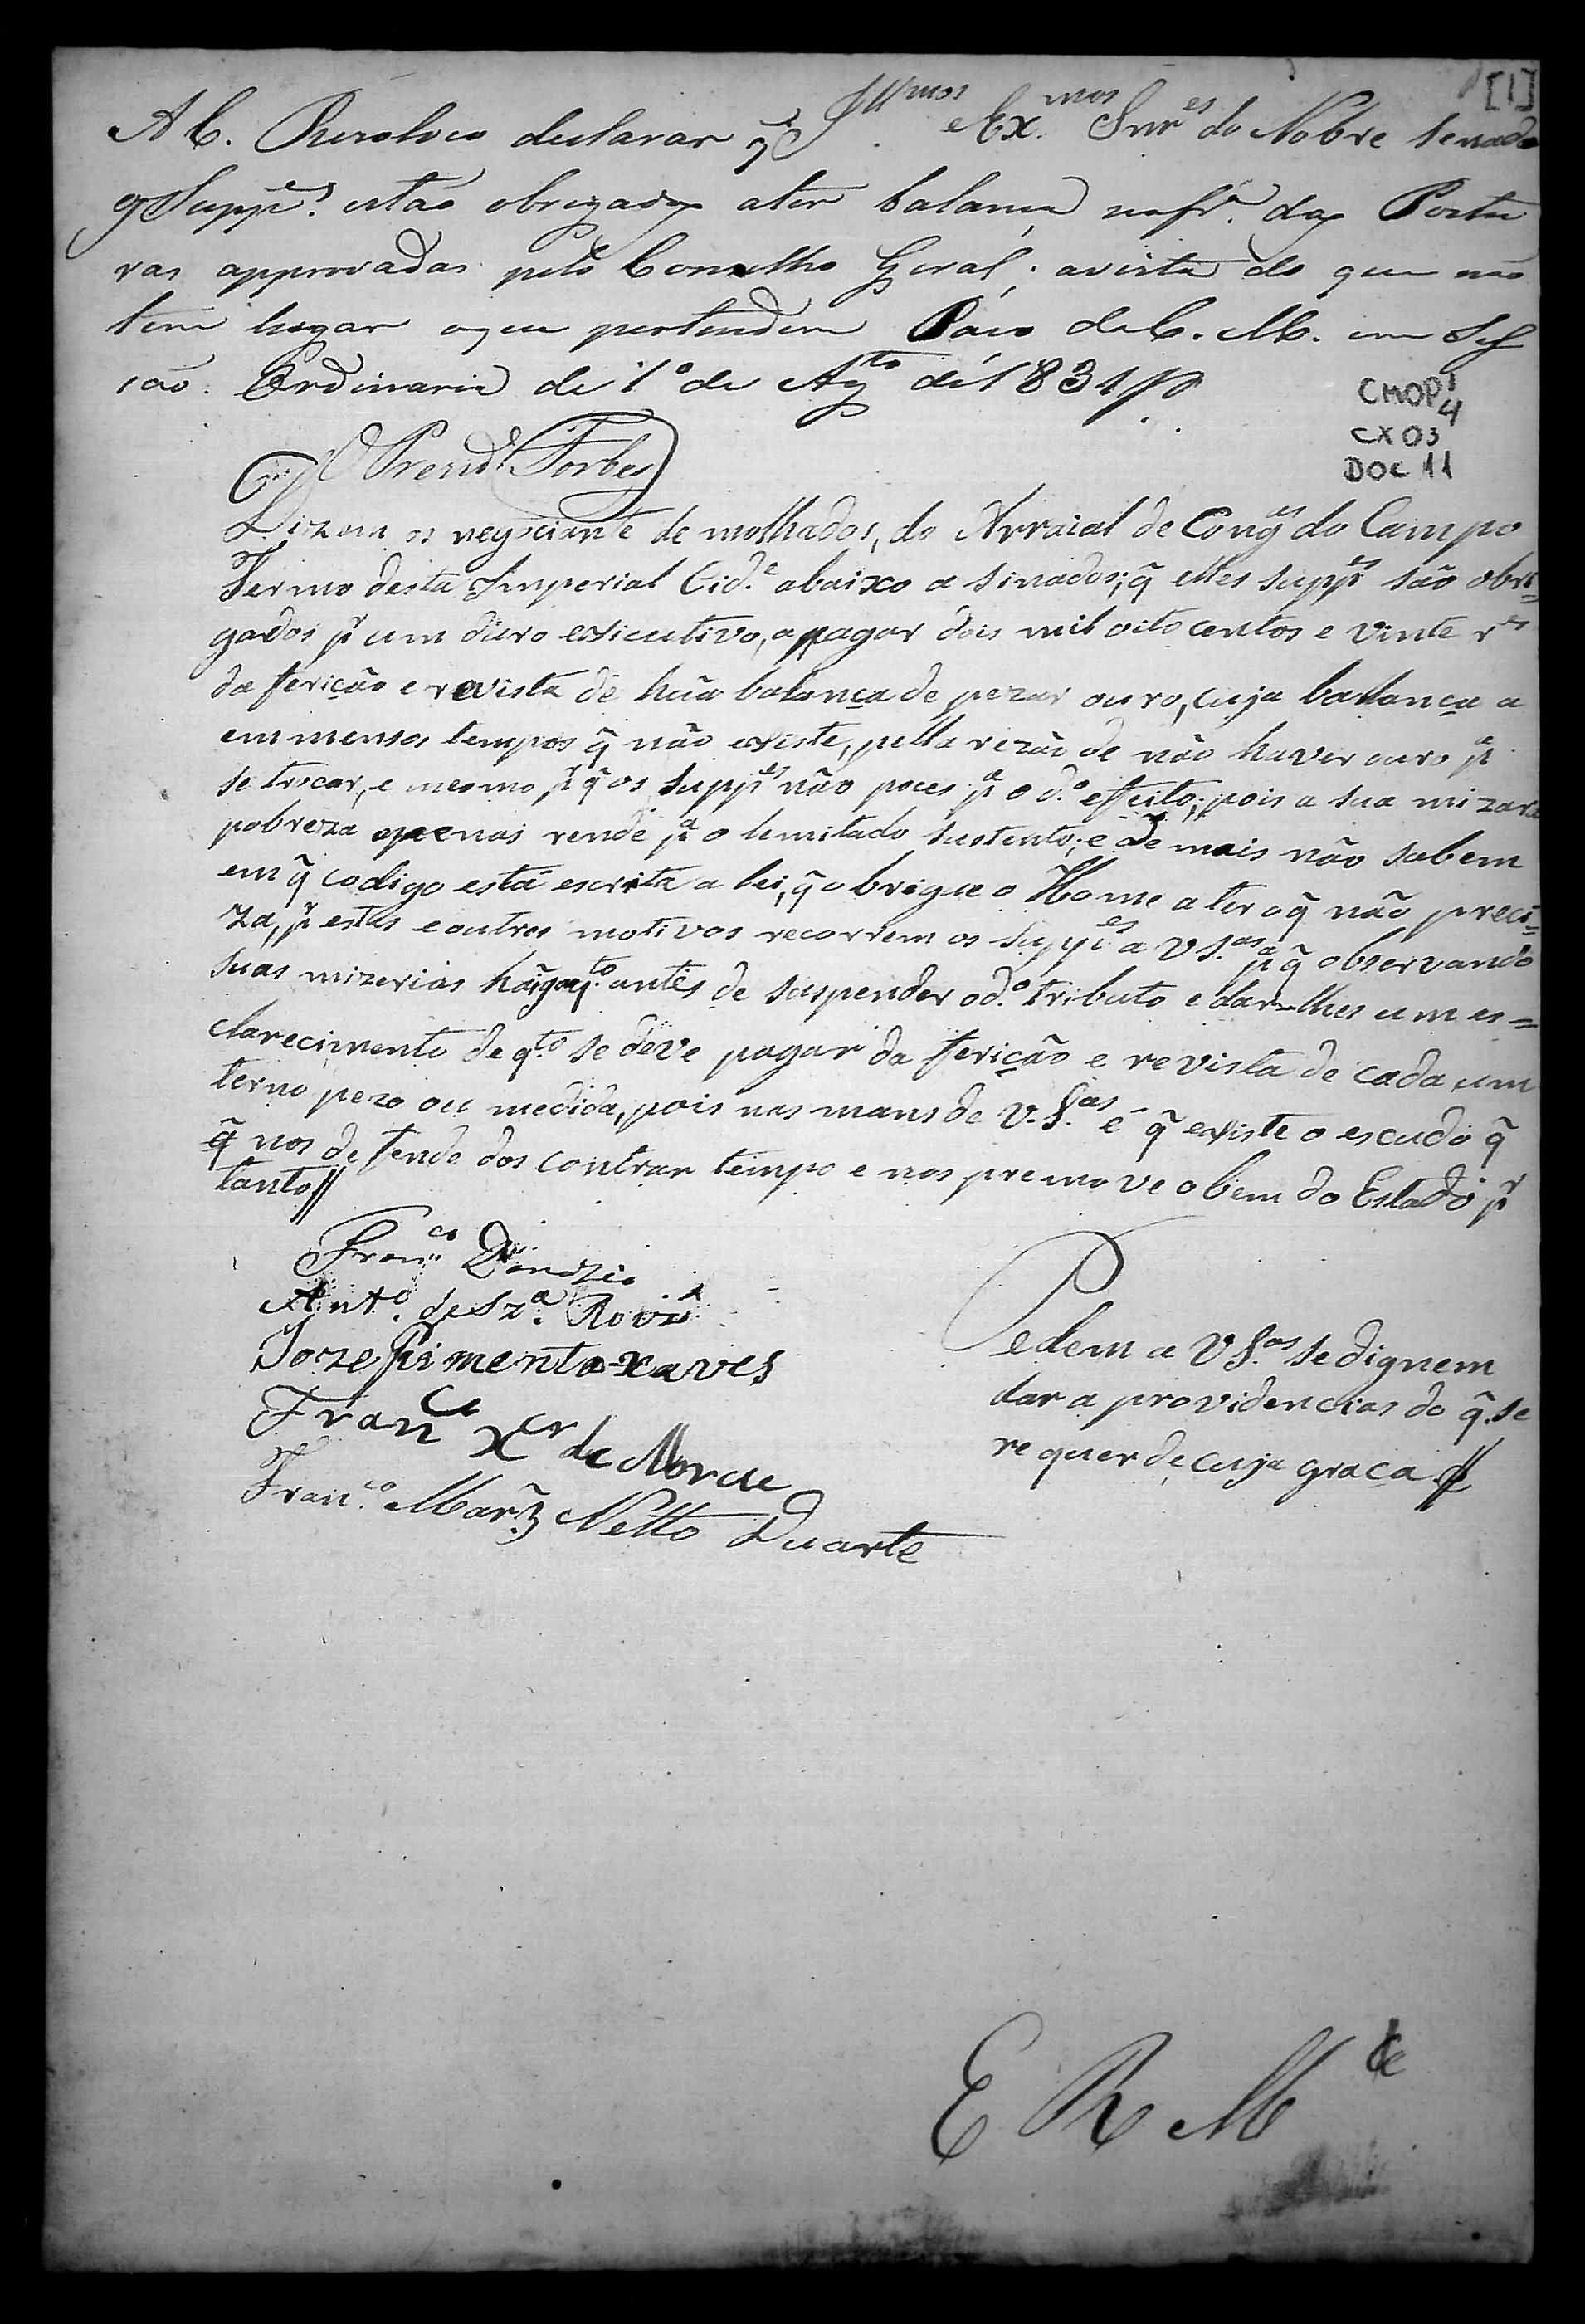 [1]
Ill.mos e Ex.mos Snr.es do Nobre Senado
A C. Rezolveo declarar q̃
os Supp.es estão obrigados a ter balança na fr.ª das Postu
ras approvadas pelo Conselho Geral; avista do que não
tem lugar o que pertendem Páço da C. M. em Ses
são Ordinaria de 1º de Ag.to de 1831
CMOP 1/4
CX 03
DOC 11
O Prezid.e Forbes
Dizem os negociante de molhados, do Arraial de Cong.as do Campo
Termo desta Imperial Cid.e abaixo a sinados; q̃ elles supp.es são obri=
gados p.r um duro exsicutivo, a pagar dois mil oito centos e vinte r.es
da fericão e revista de huã balança de pezar ouro, cuja balança a
emmensos tempos q̃ não exsiste, pella rezão de não haver ouro p.ª
se trocar, e mesmo, p.r q̃ os supp.es não poces p.ª o d.º effeito; pois a sua mizara
pobreza apenas rende p.ª o lemitado sustento; e de mais não sabem
em q̃ codigo está escrita a lei, q̃ obrigue o Home a ter o q̃ não preci=
za, p.r estes e outros motivos recorrem os supp.es a V S.as p.ª q̃ observando
suas mizerias hãjão q.to antes de suspender o d.º tributo e dar-lhes um es=
clarecimento de q.to se deve pagar da fericão e revista de cada um
terno pezo ou medida, pois nas mans de V. S.as é q̃ exsiste o escudo q̃
q̃ nos defende dos contrar tempo e nos premove o bem do Estado p.r
tanto //
Fran.co Dionizio
Ant.º de Sz.ª Roiz
Joze pimenta xaves
Fran.co X.er de
Fran.co Marz̃ Netto Duarte
Pedem a V S.as se dignem
dar a providencias do q̃ se
requer de cuja graca //
E R M.ce